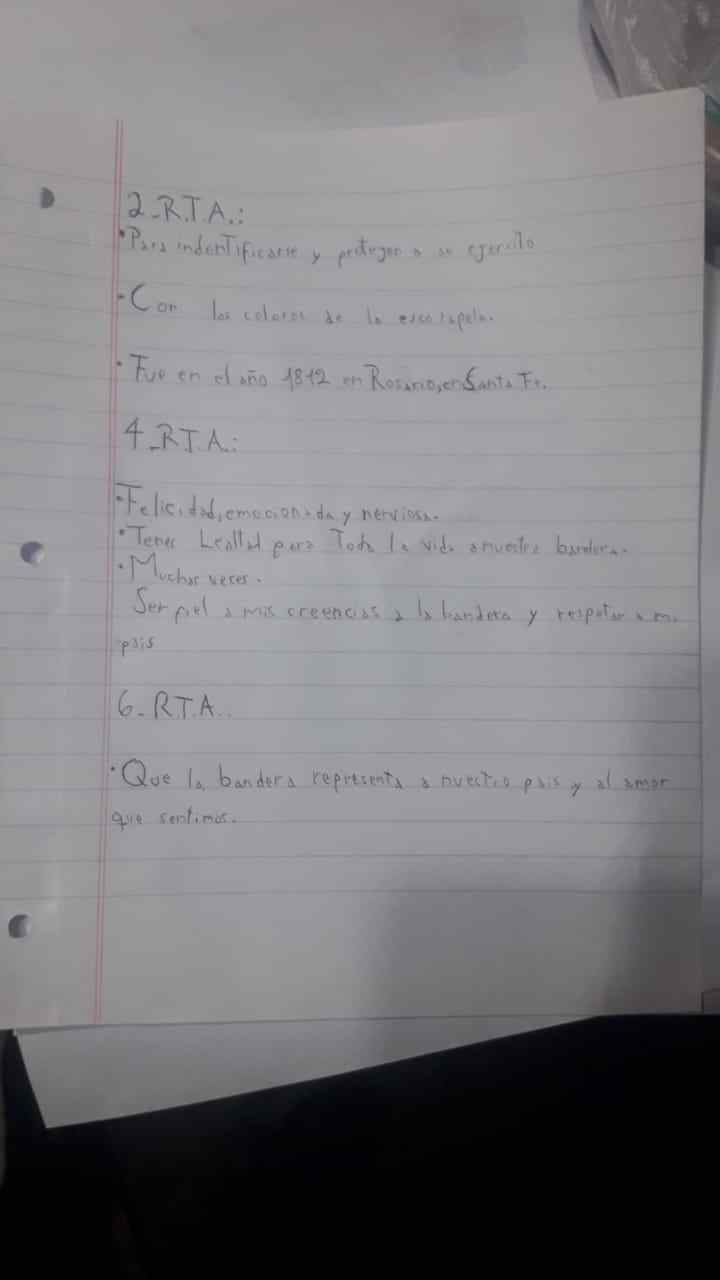 2-R.T.A.:
•Para indentificarse y protegen a su ejercito
•Con los colores de la escarapela.
•Fue en el año 1812 en Rosario,en Santa Fe.
4-R.T.A.:
•Felicidad,emocionada y nerviosa.
•Tener Lealtad para Toda la vida a nuestra bandera.
•Muchas veces.
Ser fiel a mis creencias a la bandera y respetar a mi
pais
6-R.T.A..
•Que la bandera representa a nuestro pais y al amor
que sentimos.